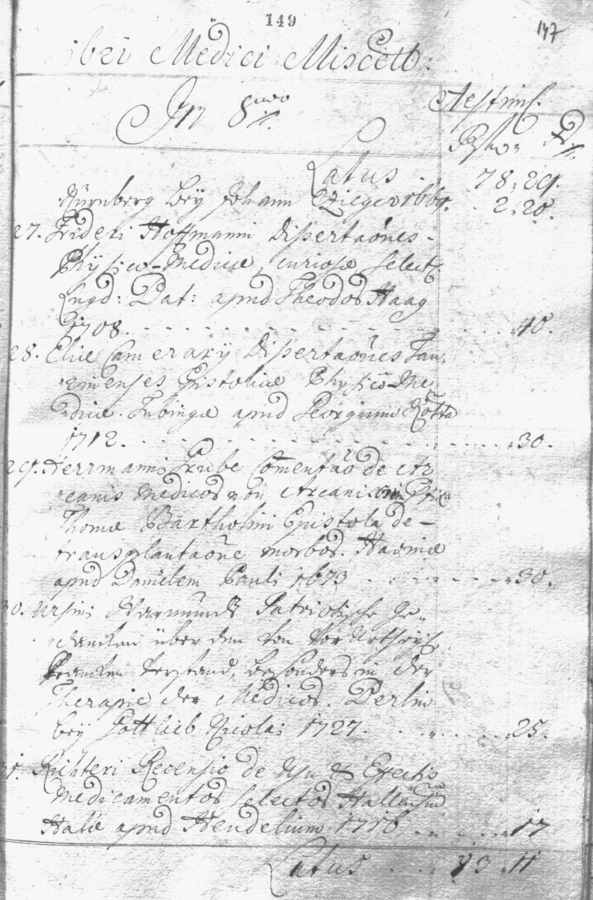 149
147
Libri Medici Miscell:
In 8vo
Aestim.
Latus . . 78.29.
Nürnberg bey Johann Zieger 1660. . 2.20.
27. Frideri Hoffmanni Dissertaões
Physico-Medicæ, curiosæ selectæ
Lugd: Bat: apud Theodor Haag
1708. . . . 40.
28. Eliæ Camerary Dissertaões Tau,
Epistolicæ Physico-Me
dicæ. Tubingæ apud Georgium Cotta
1712. . . . 30.
29. Herrmanni Grube Comentaõ de Ar
canis Medicor non Arcanis
Thomæ Bartholini Epistola de
transplantaõne morbor. Hafniæ
apud Danielem Pauli 1673 . . . 30.
30. Ursini Warmunds Patriotische Ge,
dancken über den von
Krancken Verstand, besonders in der
Therapie der Medicor. Berlin
bey Gottlieb Nicolai 1727. . . . 25.
Richteri Recensio de Usu & Effectis
Medicamentor selector
Halæ apud Hendelium 1716 . . . 17
Latus . . 83.11